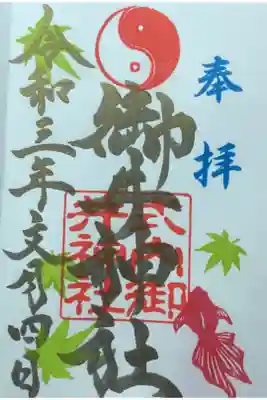 奉拝
御井神社
式内御
井神社
令和三年文月四日